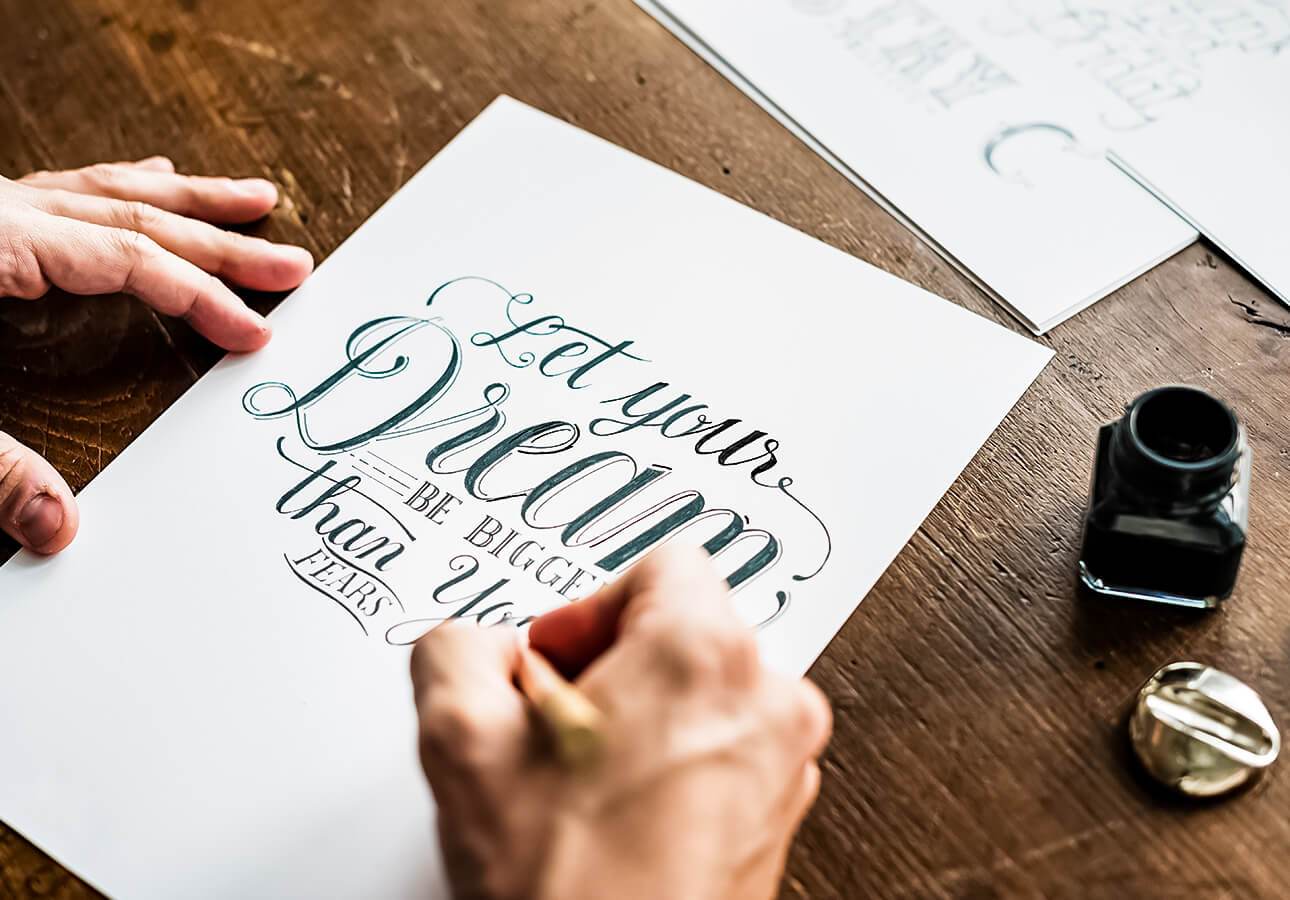 Let your
Dream
BE BIGGE
than You
FEARS
C